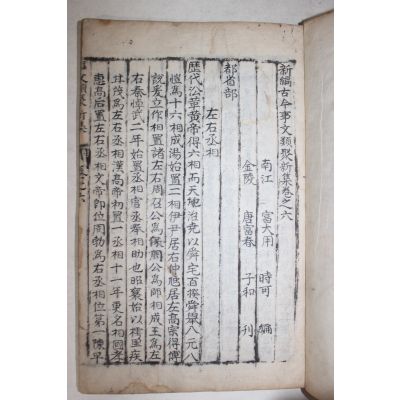 新編古今事文類聚新集卷之六
南江 富大用 時可 編
金陵 唐富春 子和 刋
都省部
左右丞相
歷代沿革黃帝得六相而天地治堯以舜宅百揆舜舉八元八
愷爲十六相成湯始置二相伊尹居右仲虺居左高宗得傅
說爰立作相置諸左右周召公爲保周公爲師相成王爲左
右秦悼武二年始置丞相官丞奉相助也昭襄始以樗里疾
甘茂爲左右丞相漢高帝初置一丞相十一年更名相國孝
惠高后置左右丞相文帝即位周勃爲右丞相位第一陳平